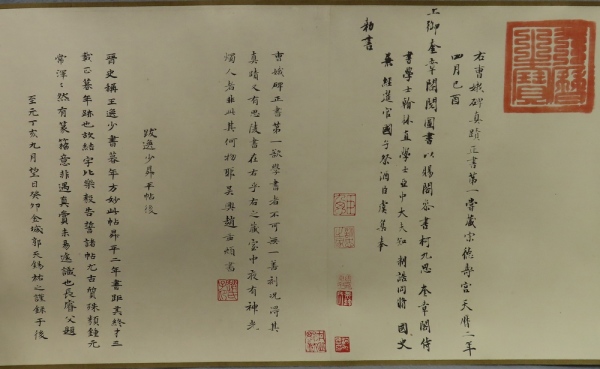 天曆之寶
右曹娥碑真蹟正書第一嘗藏宗德壽宮天曆二年
四月己酉
上御奎章閣閱圖書以賜閣參書柯九思奎章閣侍
書學士翰林直學士亞中大夫知制誥同脩國史
兼經筵官國子祭酒臣虞集奉
勅書
曹娥碑正書第一欲學書者不可無一善刻況得其
真蹟又有思陵書在右乎右之藏室中夜有神光
燭人者非此其何物耶吳興趙孟頫書
跋逸少昇平帖後
晉史稱王逸少書暮年方妙此帖昇平二年書距其終才三
載正暮年跡也故結字比樂毅告誓諸帖尤古質殊類鍾元
常渾〻然有篆籀意非遇真賞未易遽識也長睿父題
至元丁亥九月望日癸卯金城郭天錫祐之謹錄于後